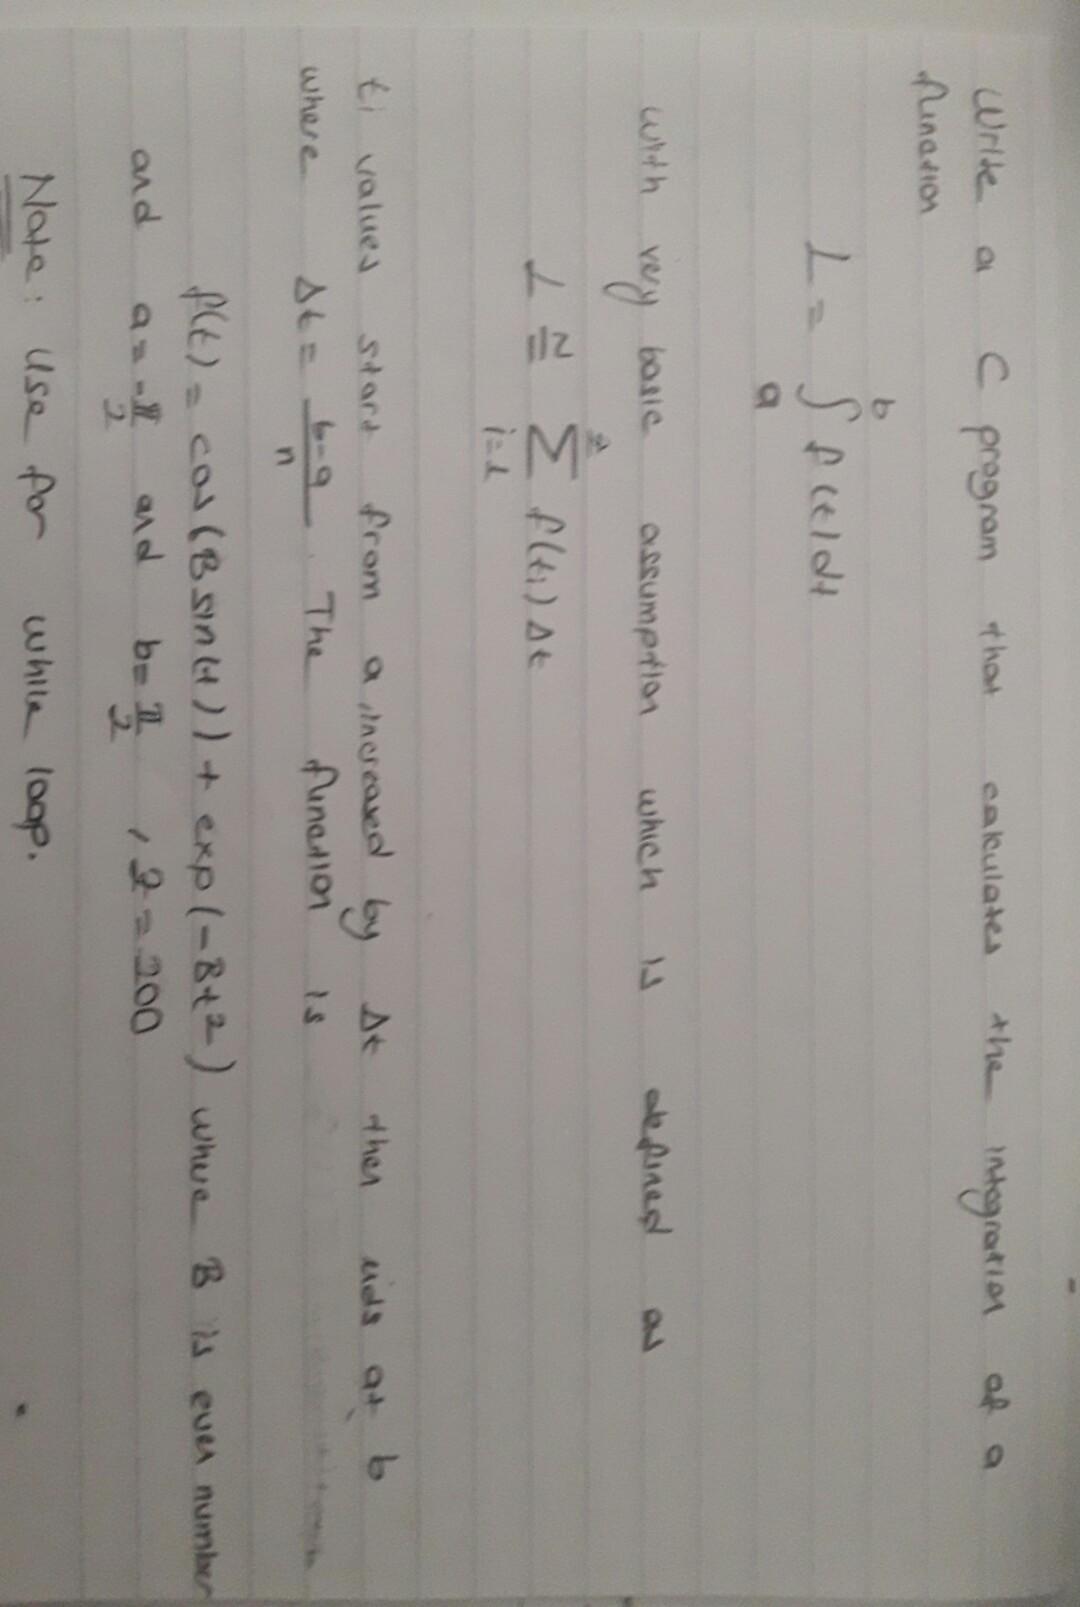 Write a C program that calculates the integration of a
function
L = ∫ₐᵇ f(t)dt
with very basic assumption which is defined as
L ≅ Σ f(tᵢ) Δt
i=1
tᵢ values start from a, increased by Δt then ends at b
where Δt = b-a/n . The function is
f(t) = cos(B sin(t)) + exp(-Bt²) where B is even number
and a = -π/2 and b = π/2 , = 200
Note: Use for while loop.